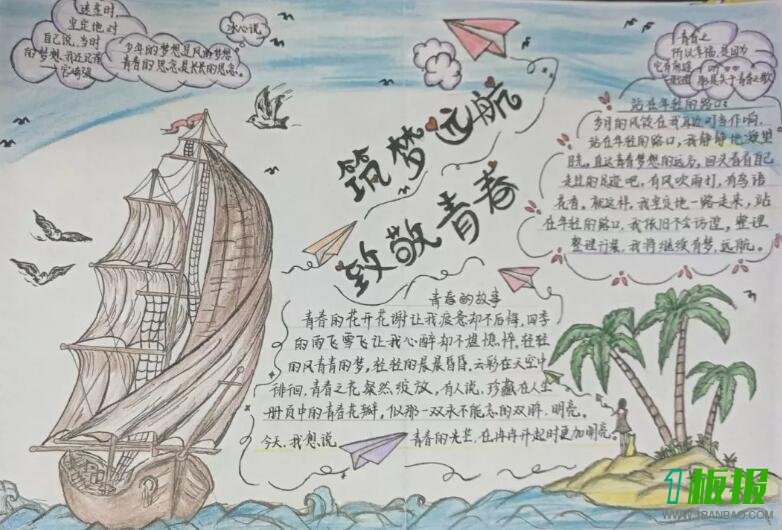 迷茫时,
坚定地对
自己说,当时
的梦想,我还记得
宫崎骏
少年的梦想是风的梦想
青春的思念是长长的思念。
冰心说
筑梦远航
致敬青春
青春之
所以幸福,是因为
它有前途
站在年轻的路口:
岁月的风铃在我耳边叮当作响,
站在年轻的路口,我静静地凝望
目光,直达青春梦想的远方,回头看看自己
走过的足迹吧,有风吹雨打,有鸟语
花香。就这样,我坚定地一路走来,站
在年轻的路口,我依旧不会彷徨,整理
整理行装,我将继续有梦,远航。
青春的故事
青春的花开花谢让我疲惫却不后悔,四季
的雨飞雪飞让我心醉却不堪憔悴,轻轻
的风青青的梦,轻轻的晨晨昏昏,云彩在天空中
徘徊,青春之花粲然绽放,有人说,珍藏在人生
册页中的青春花瓣,似那一双永不能忘的双眸,明亮。
今天,我想说 青春的光芒,在冉冉升起时更加明亮。
1板报
WWW.1BANBAO.COM